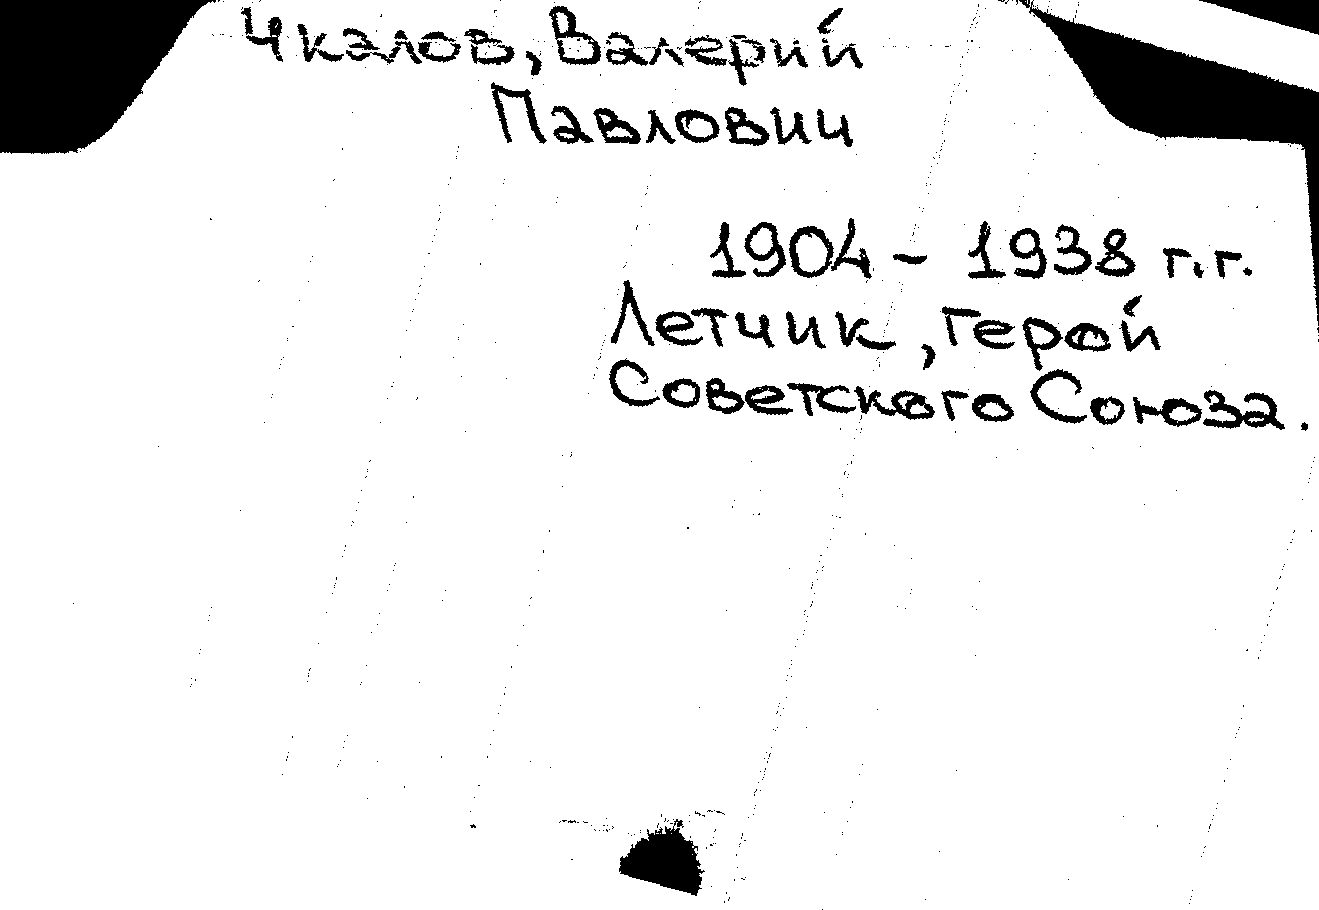 Чкалов, Валерий
Павлович
1904 - 1938 г.г.
Летчик, герой
Советского Союза.